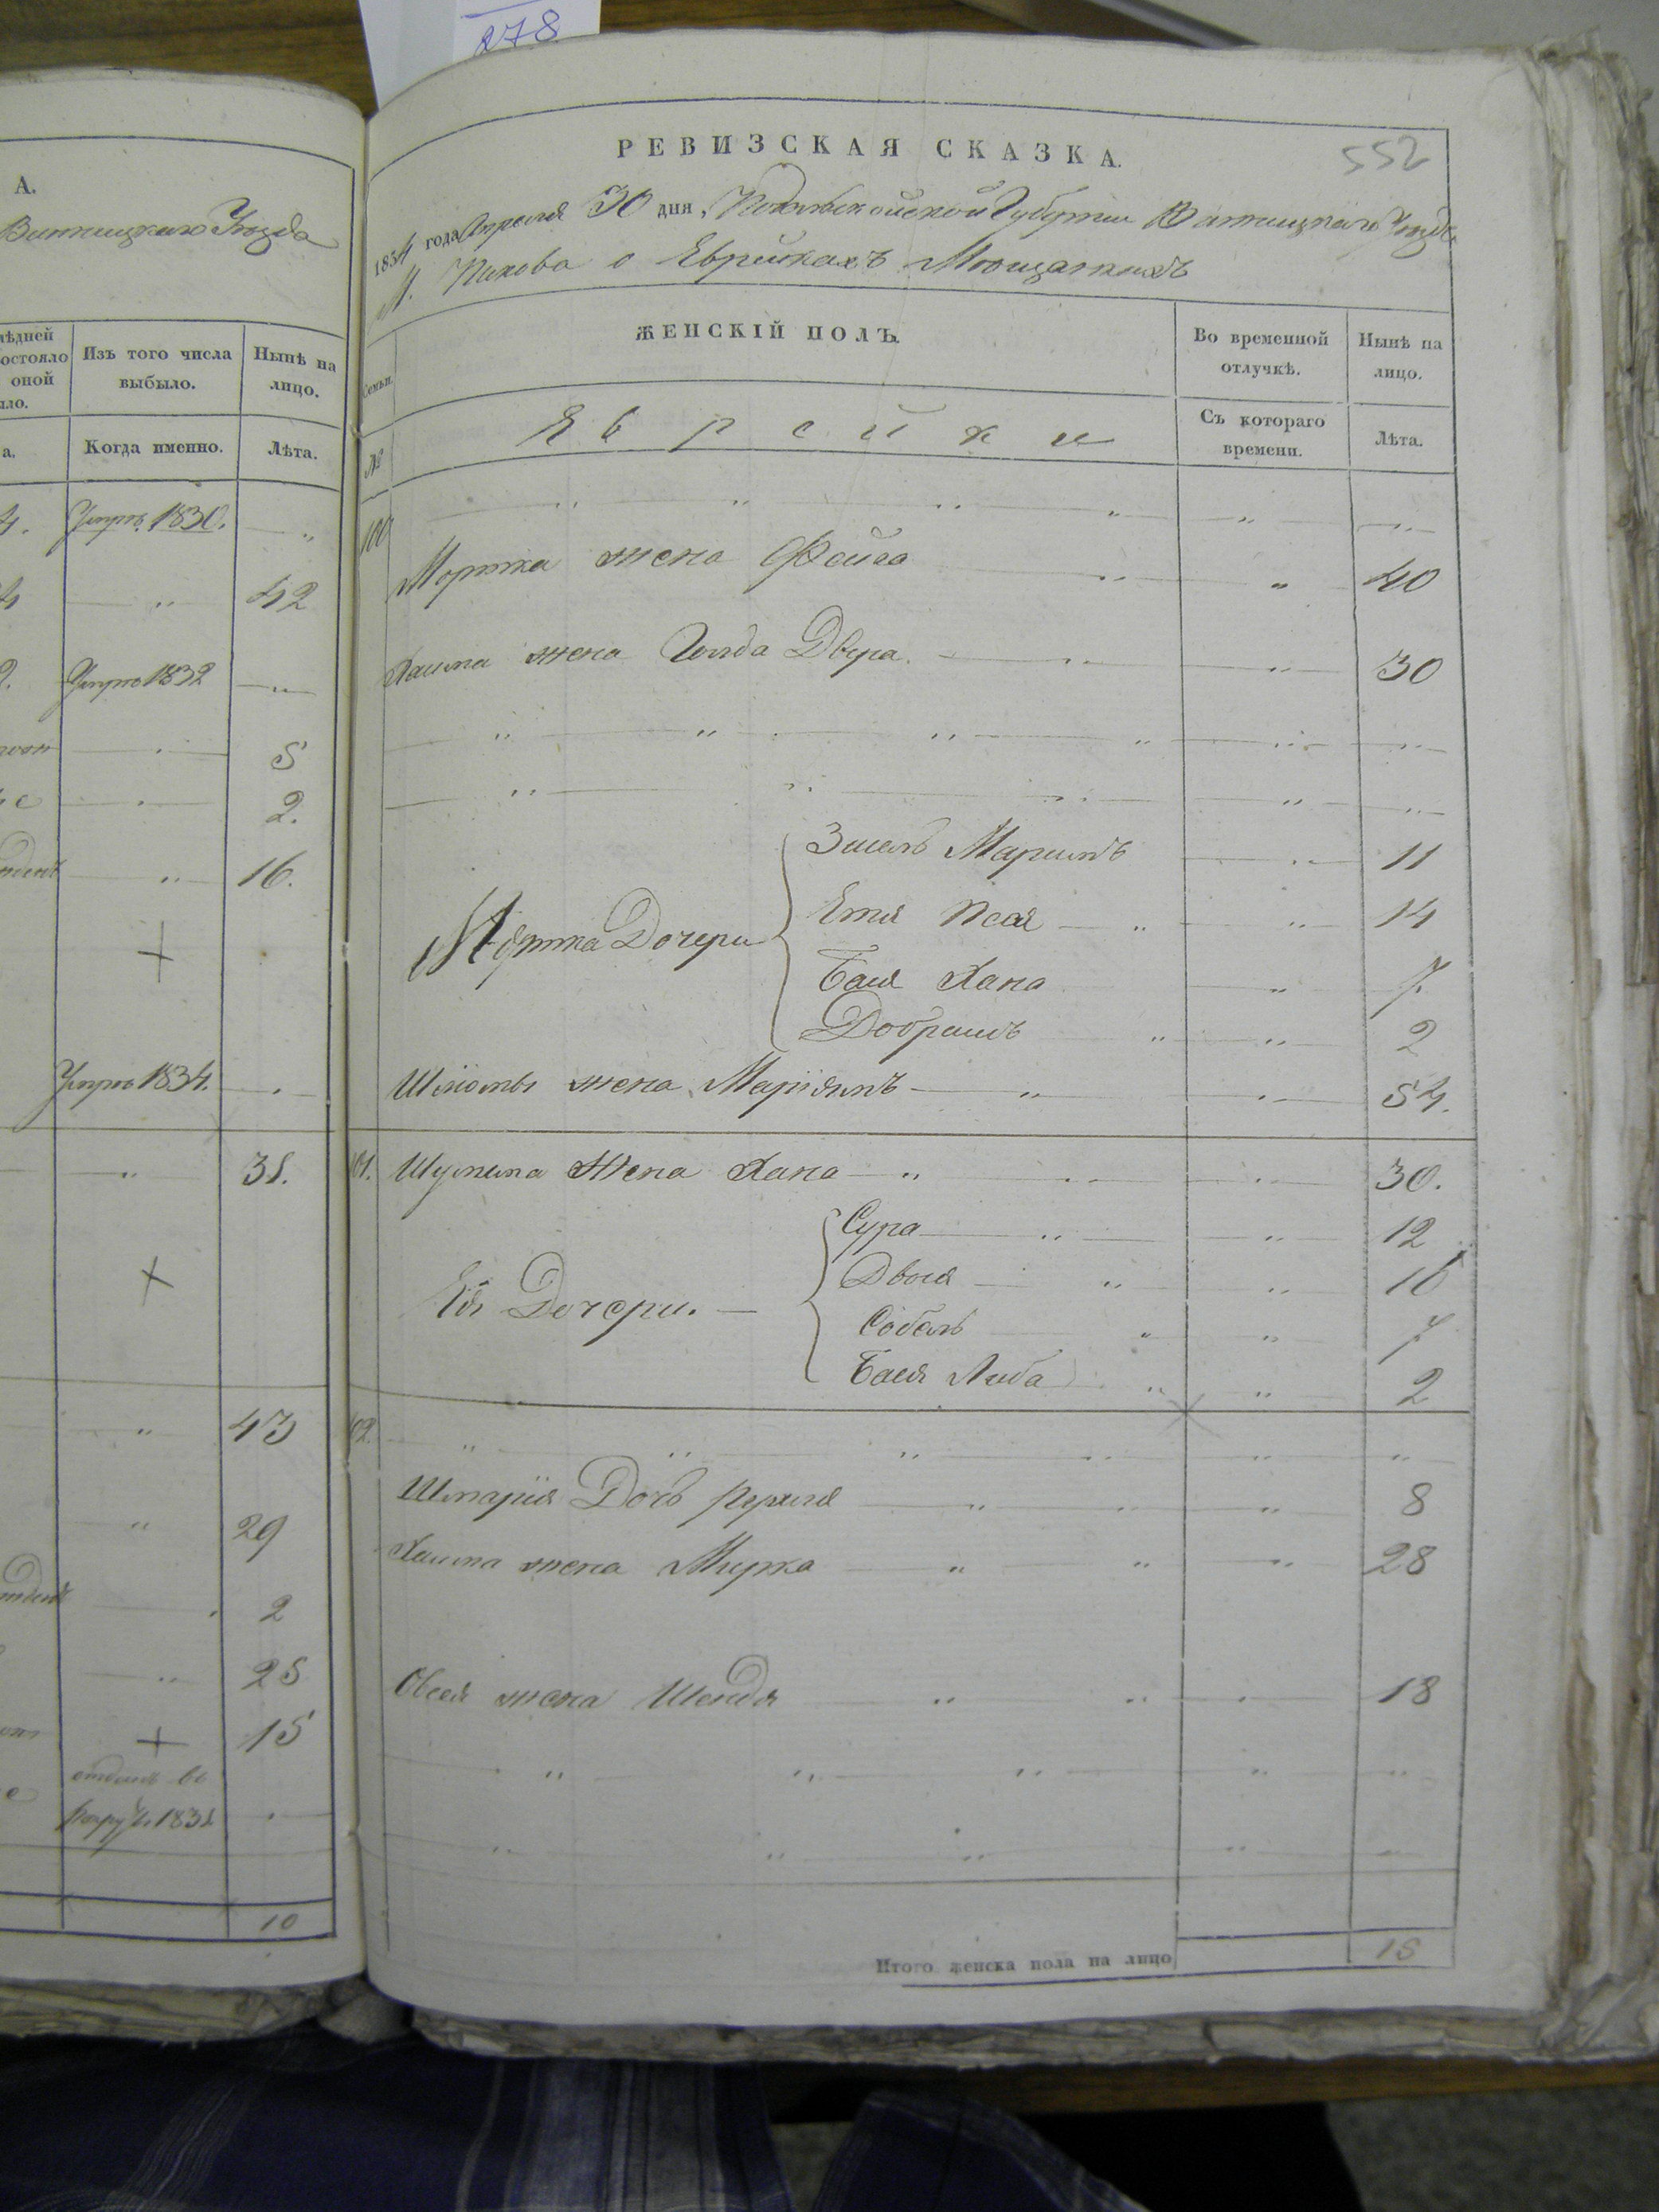 278
А.
Винницкаго Уезда
Изъ того числа выбыло.
Ныне на лицо.
Когда именно.
Лѣта.
Умръ 1830.
42
Умръ 1832
5
2.
16.
Умръ 1834.
43
29
2
25
15
отданъ въ
рекру. 1831
10
РЕВИЗСКАЯ СКАЗКА.
552
1834 года Апреля 30 дня, Подольской Губернии Винницкаго Уезда
М. Пикова о Еврейкахъ Мещанкахъ
Семьи.
ЖЕНСКІЙ ПОЛЪ.
Во временной отлучкѣ.
Нынѣ на лицо.
№
Еврейки
Съ котораго времени.
Лѣта.
100
Мортка жена Фейга 40
Хаима жена Голда Двера. 30
Мортка Дочери
Зисль Маримъ 11
Етя Песя 14
Бася Хана 7.
Добришъ 2
Шлиомы жена Маріямъ 54.
101. Шулима Жена Хана 30.
Ея Дочери.
Сура 12
Двося 10
Собель 7
Бася Либа 2
102.
Шмарія Дочь Рухля 8
Хаима жена Мирка 28
Овсея жена Шендя 18
Итого женска пола на лицо 15